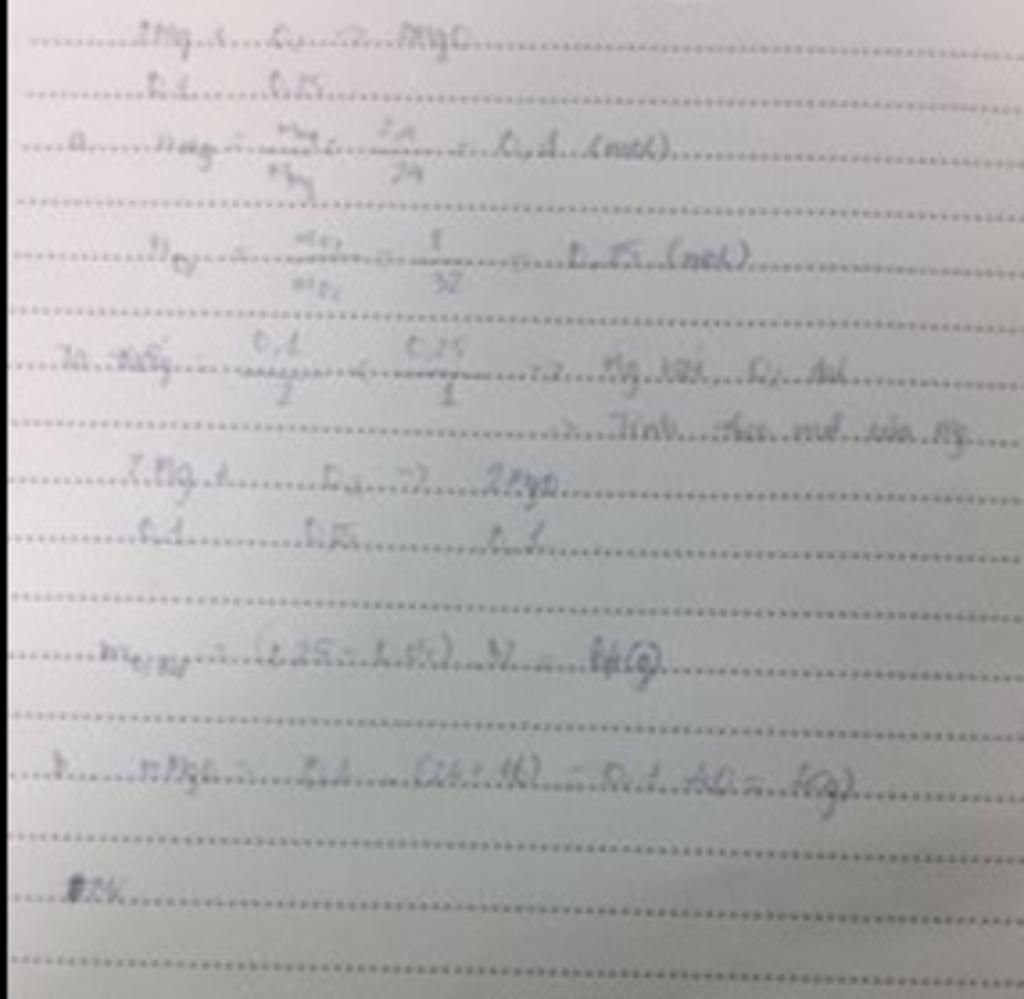 2Mg + O₂ -> MgO
0,1 0,25
a nMg = mMg/MMg = 2,4/24 = 0,1 (mol)
nO₂ = mO₂/MO₂ = 8/32 = 0,25 (mol)
Ta thấy: 0,1/2 < 0,25/1 => Mg hết, O₂ dư
=> Tính theo mol của Mg
2Mg + O₂ -> 2MgO
0,1 0,25 0,1
= 32 = (g)
b mMgO = 0,1 (24+16) = 0,1 40 = (g)